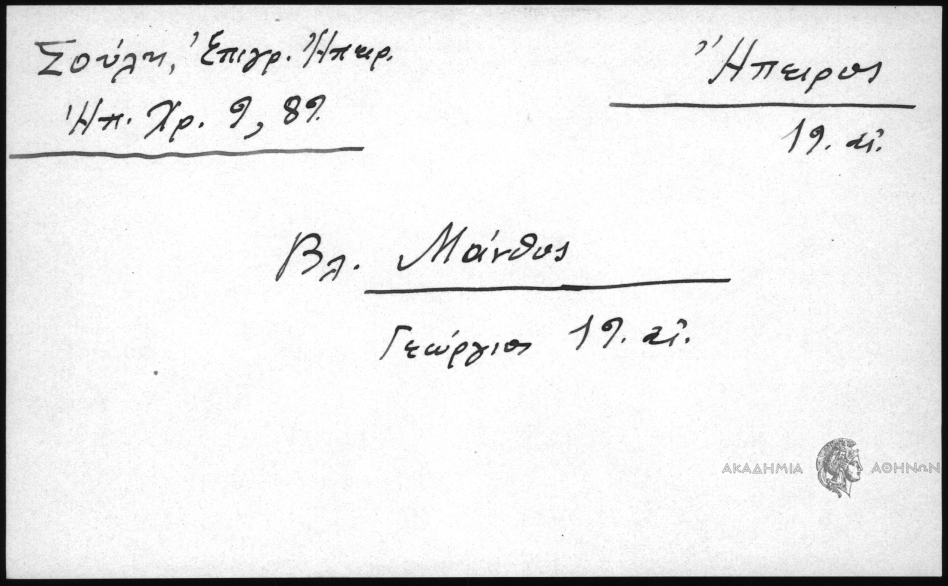 Σούλη, Ἐπιγρ. Ἠπειρ.
Ἠπ. Χρ. 9, 89.
Ἤπειρος
19. αἰ.
Βλ. Μάνθος
Γεώργιος 19. αἰ.
ΑΚΑΔΗΜΙΑ ΑΘΗΝΩΝ